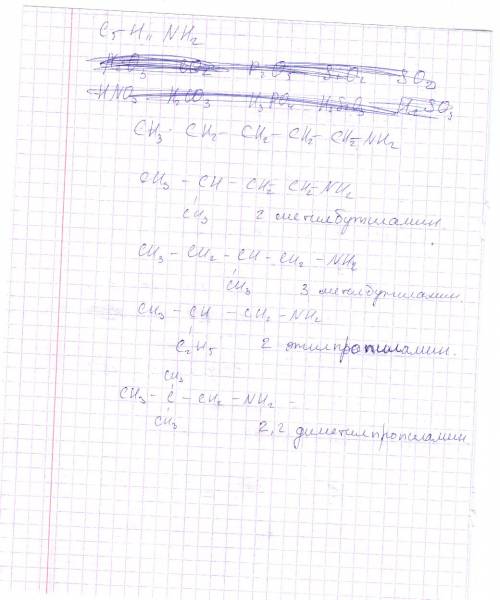 C₅H₁₁NH₂
N₂O₃ CO₂ P₂O₅ SiO₂ SO₂
HNO₃ H₂CO₃ H₃PO₄ H₂SiO₃ H₂SO₃
CH₃ - CH₂ - CH₂ - CH₂ - CH₂-NH₂
CH₃ - CH - CH₂ CH₂-NH₂
CH₃ 2 метилбутиламин.
CH₃ - CH₂ - CH - CH₂ - NH₂
CH₃ 3 метилбутиламин.
CH₃ - CH - CH₂ - NH₂
C₂H₅ 2 этилпропиламин.
CH₃
CH₃ - C - CH₂ - NH₂ -
CH₃ 2,2 диметилпропиламин.